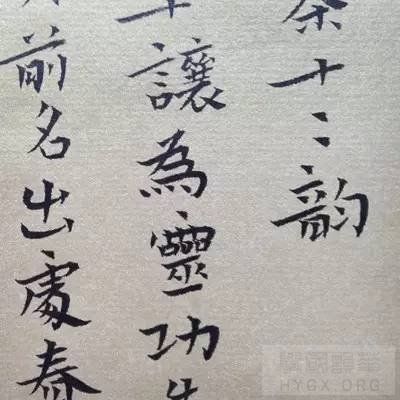 茶十二韵
讓為靈功
前名出處春
HYGX.ORG